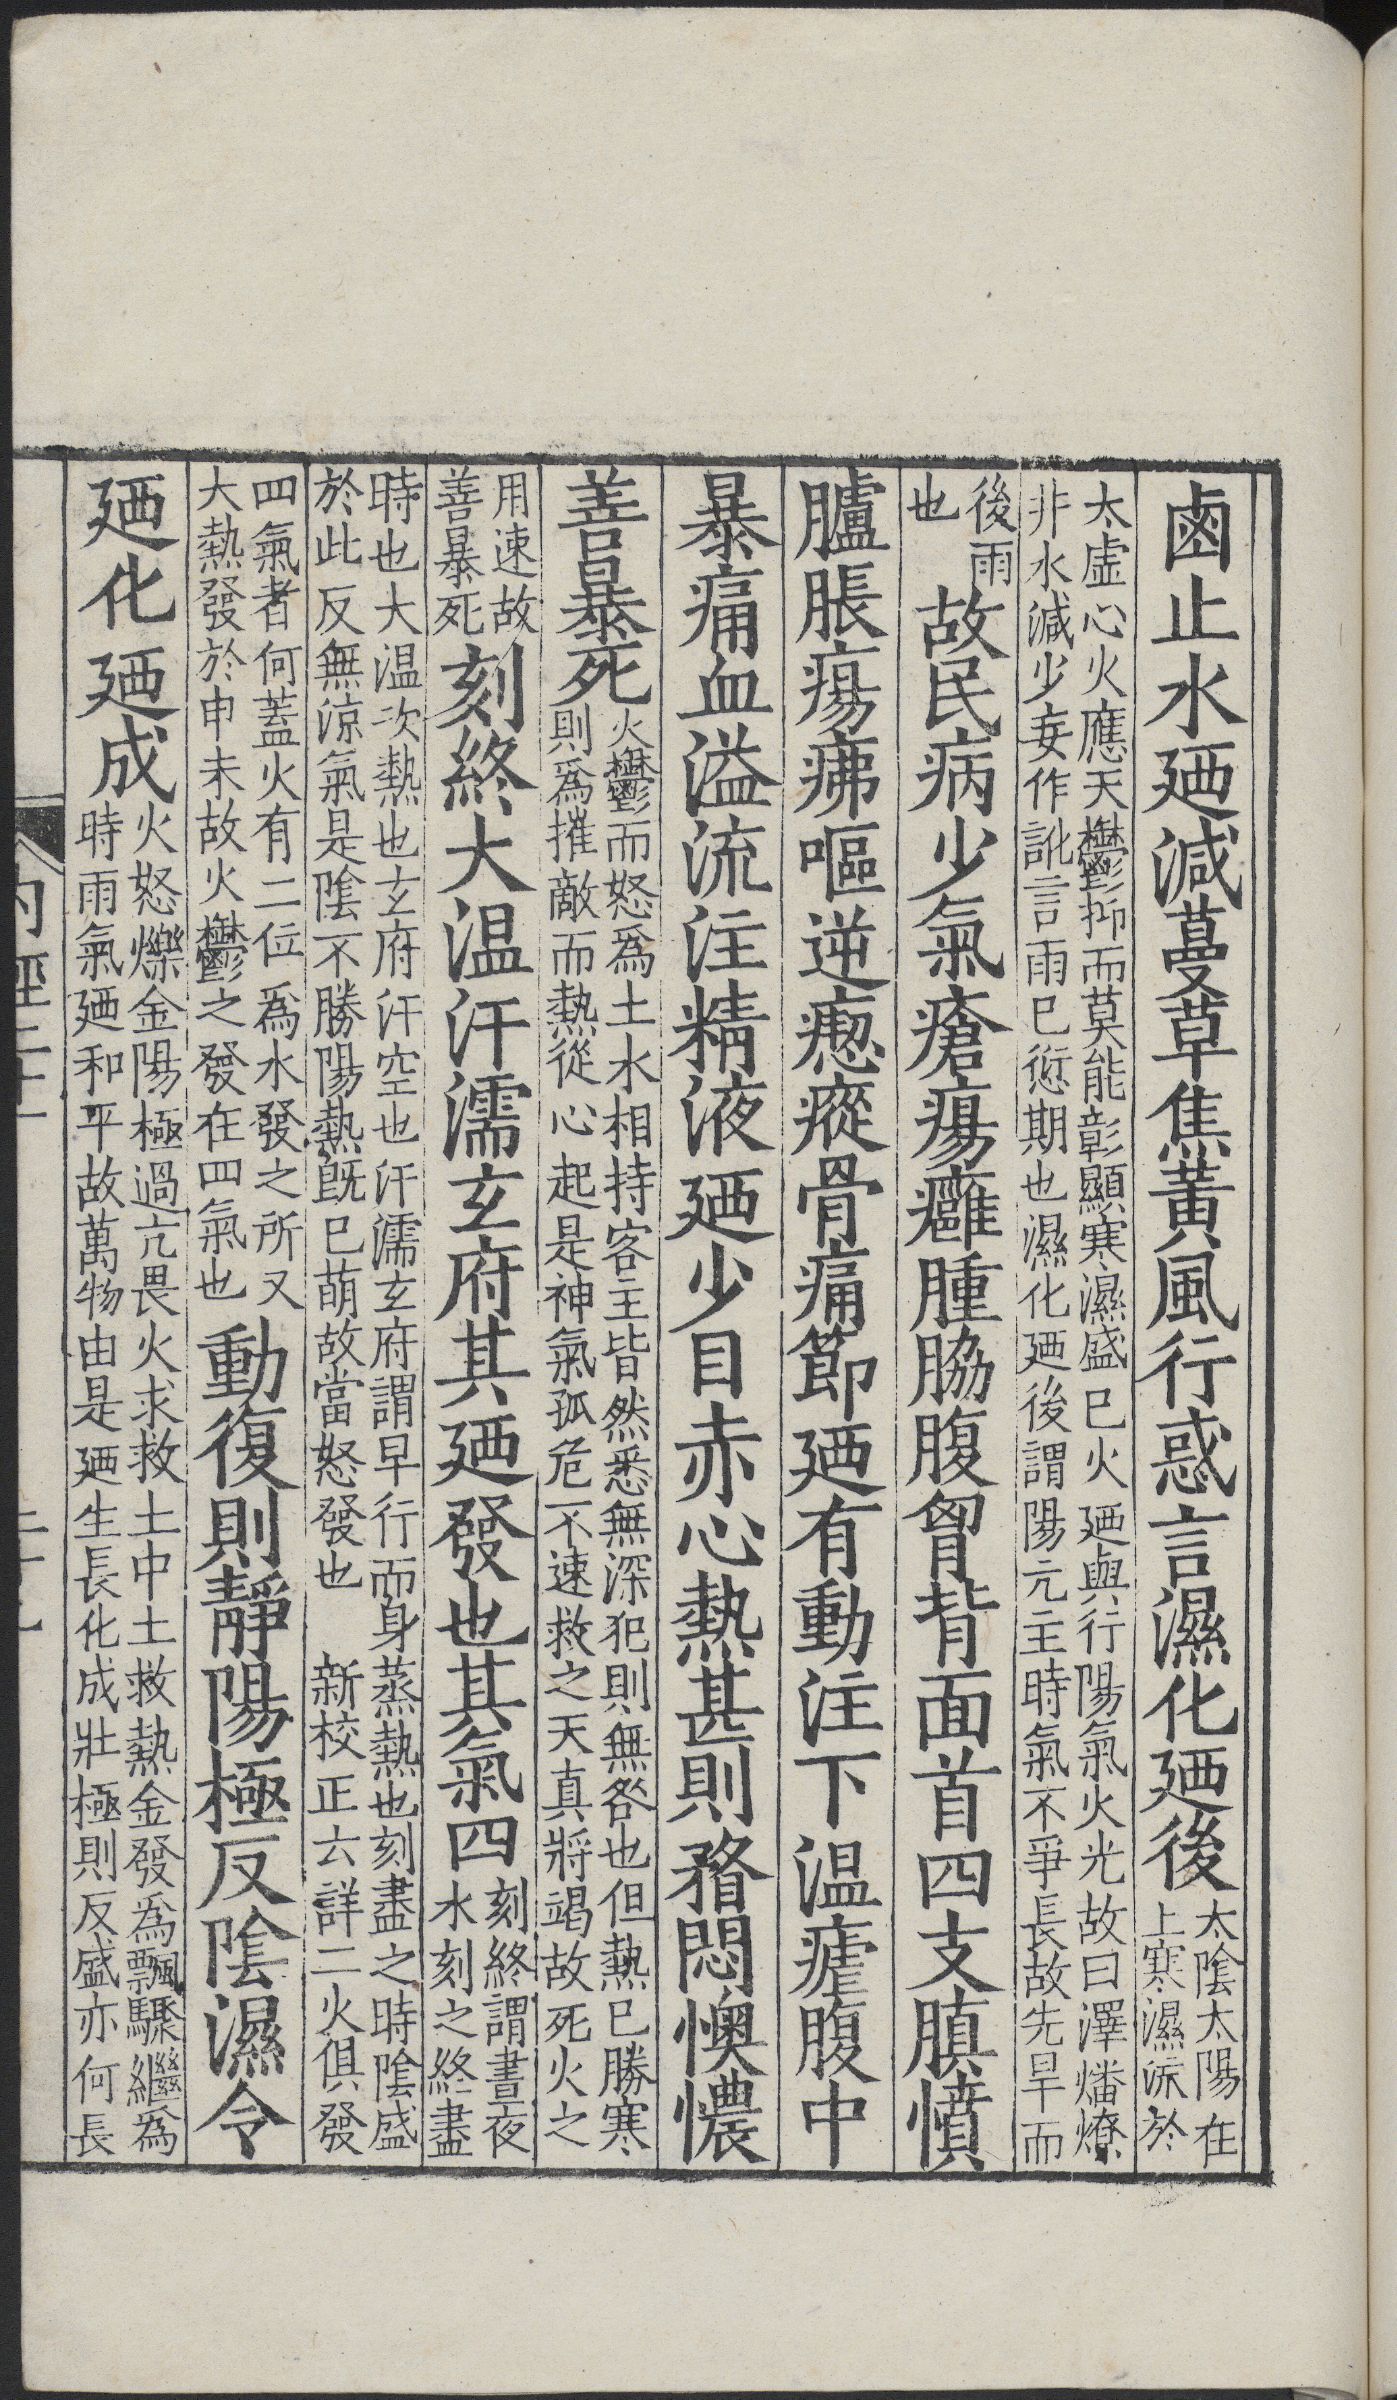 鹵止水廼減蔓草焦黃風行惑言濕化廼後太陰太陽在上寒濕流於
太虛心火應天鬱抑而莫能彰顯寒濕盛已火廼與行陽氣火光故曰澤燔燎
非水減少妄作訛言雨已愆期也濕化廼後謂陽元主時氣不爭長故先旱而
後雨也故民病少氣瘡瘍癰腫脇腹胷背面首四支䐜憤
臚脹瘍疿嘔逆瘛瘲骨痛節廼有動注下温瘧腹中
暴痛血溢流注精液廼少目赤心熱甚則瞀悶懊憹
善暴死火鬱而怒爲土水相持客主皆然悉無深犯則無咎也但熱已勝寒則爲摧敵而熱從心起是神氣孤危不速救之天真將竭故死火之
用速故善暴死刻終大温汗濡玄府其廼發也其氣四刻終謂晝夜水刻之終盡
時也大温次熱也玄府汗空也汗濡玄府謂早行而身蒸熱也刻盡之時陰盛
於此反無涼氣是陰不勝陽熱旣已萌故當怒發也 新校正云詳二火俱發
四氣者何蓋火有二位爲水發之所又大熱發於申未故火鬱之發在四氣也動復則靜陽極反陰濕令
廼化廼成火怒爍金陽極過亢畏火求救土中土救熱金發爲飄驟繼爲時雨氣廼和平故萬物由是廼生長化成壯極則反盛亦何長